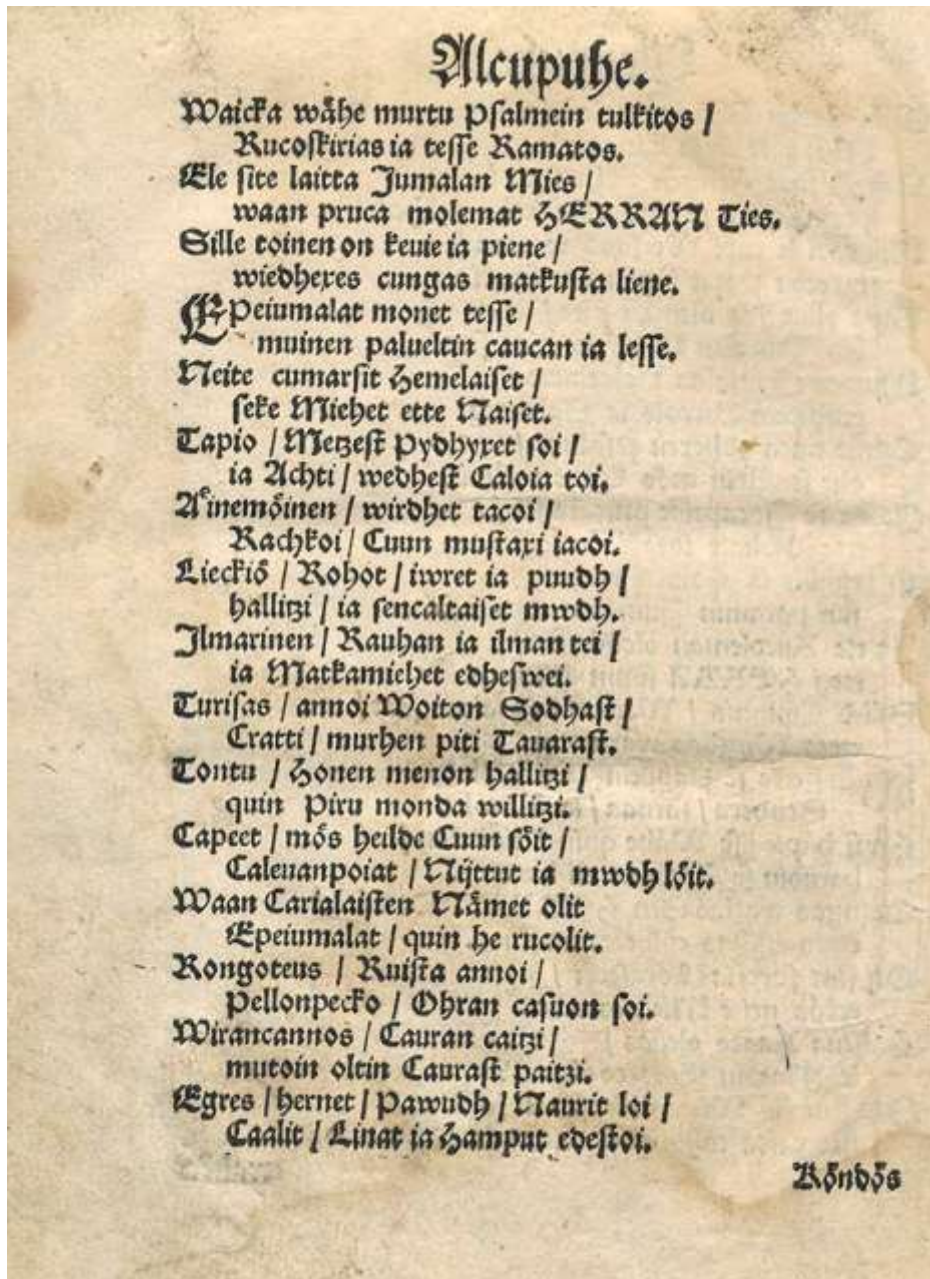 Alcupuhe.
Waicka wähe murtu Psalmein tulkitos /
Rucoskirias ia tesse Ramatos.
Ele site laitta Jumalan Mies /
waan pruca molemat HERRAN Ties.
Sille toinen on keuie ia piene /
wiedhexes cungas matkusta liene.
EPeiumalat monet tesse /
muinen palueltin caucan ia lesse.
Neite cumarsit Hemelaiset /
seke Miehet ette Naiset.
Tapio / Metzest Pydhyxet soi /
ia Achti / wedhest Caloia toi.
Äinemöinen / wirdhet tacoi /
Rachkoi / Cuun mustaxi iacoi.
Lieckiö / Rohot / iwret ia puudh /
hallitzi / ia sencaltaiset mwdh.
Jlmarinen / Rauhan ia ilman tei /
ia Matkamiehet edheswei.
Turisas / annoi Woiton Sodhast /
Cratti / murhen piti Tauarast.
Tontu / Honen menon hallitzi /
quin Piru monda willitzi.
Capeet / mös heilde Cuun söit /
Caleuanpoiat / Nijttut ia mwdh löit.
Waan Carialaisten Nämet olit
Epeiumalat / quin he rucolit.
Rongoteus / Ruista annoi /
Pellonpecko / Ohran casuon soi.
Wirancannos / Cauran caitzi /
mutoin oltin Caurast paitzi.
Egres / hernet / Pawudh / Naurit loi /
Caalit / Linat ia Hamput edestoi.
Köndös